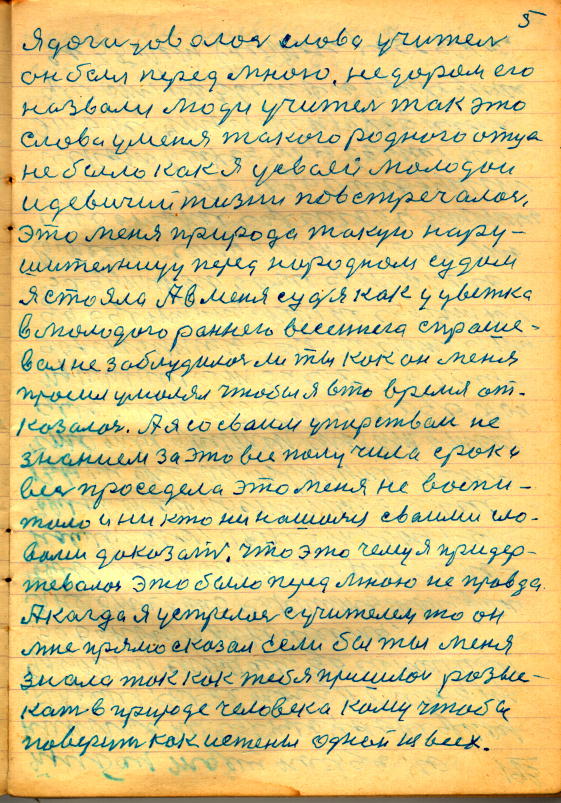 5
Я догидовалоя слова учител
он был перед мною. недором его
назвали люди учител так это
слова уменя такого родного отца
не было как я усваей молодои
и девичий жизни повстречалоя.
это меня природа такую нару-
шительницу перед народном судом
я стояла А в меня судя как у цветка
в молодого раннего весеннега спраше-
вал не заблудилоя ли ты как он меня
просил умолял чтобы я в то время от-
козалоя. А я со сваим упирствам не
знанием за это все получила срок и
вся проседела это меня не воспи-
тало и ни кто ни нашолоя сваими сло-
вами доказат. что это чему я придер-
жевалоя это было перед мною не правда.
А кагда я устрелоя с учителем то он
мне прямо сказал если бы ты меня
знала так как тебя пришлоя розые-
кат в природе человека кому чтобы
поверит как истены одной на всех.